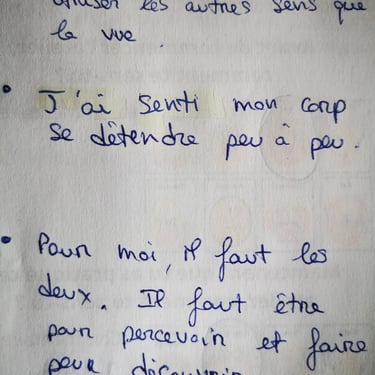 utiliser les autres sens que
la vue.
J'ai senti mon corp
se détendre peu à peu.
Pour moi il faut les
deux. Il faut être
pour percevoir et faire
pour découvrir